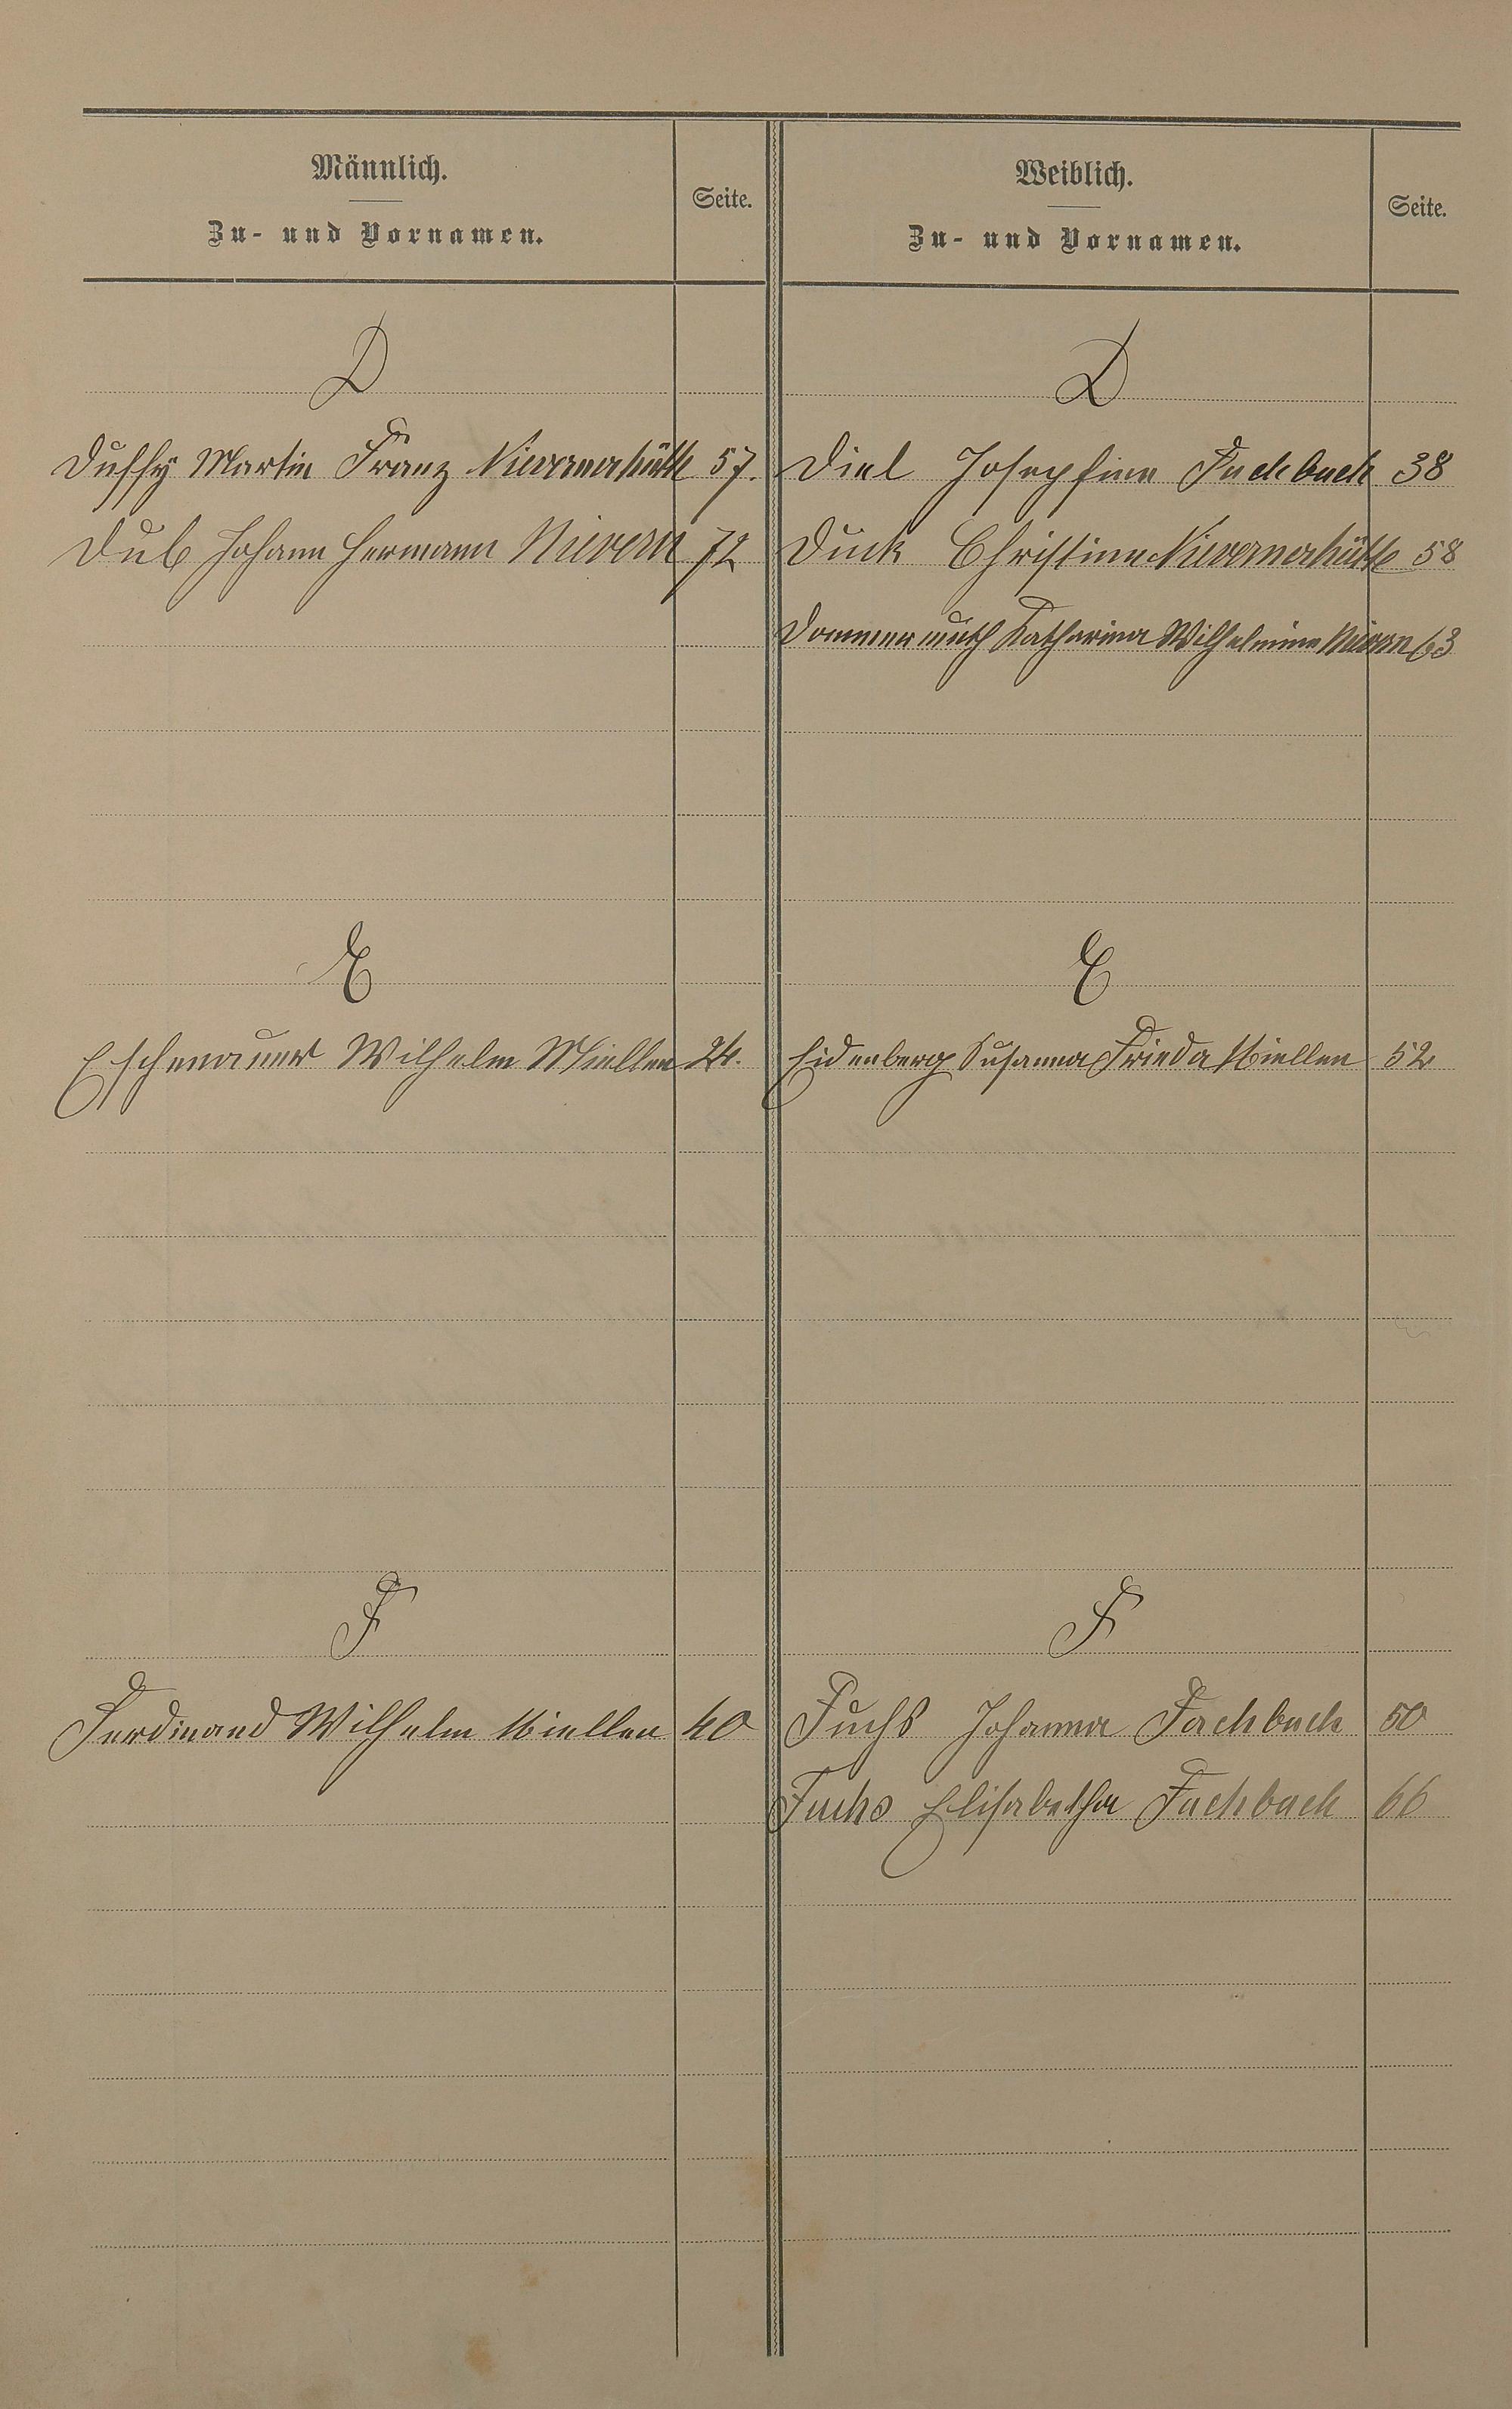 Männlich.
Zu- und Vornamen.
Seite.
Weiblich.
Zu- und Vornamen.
Seite.
D
D
Duffy Martin Franz Nievernerhütte 57.
Diel Josephine Fachbach 38
Dub Johann Hermann Nievern 72
Duck Christine Nievernerhütte 58
Dommermuth Katharina Wilhelmine Nievern 63
E
E
Eschenauer Wilhelm Miellen 24.
Eidenberg Susanna Frieda Miellen 52
F
F
Ferdinand Wilhelm Miellen 40
Fuchs Johanna Fachbach 50
Fuchs Elisabetha Fachbach 66